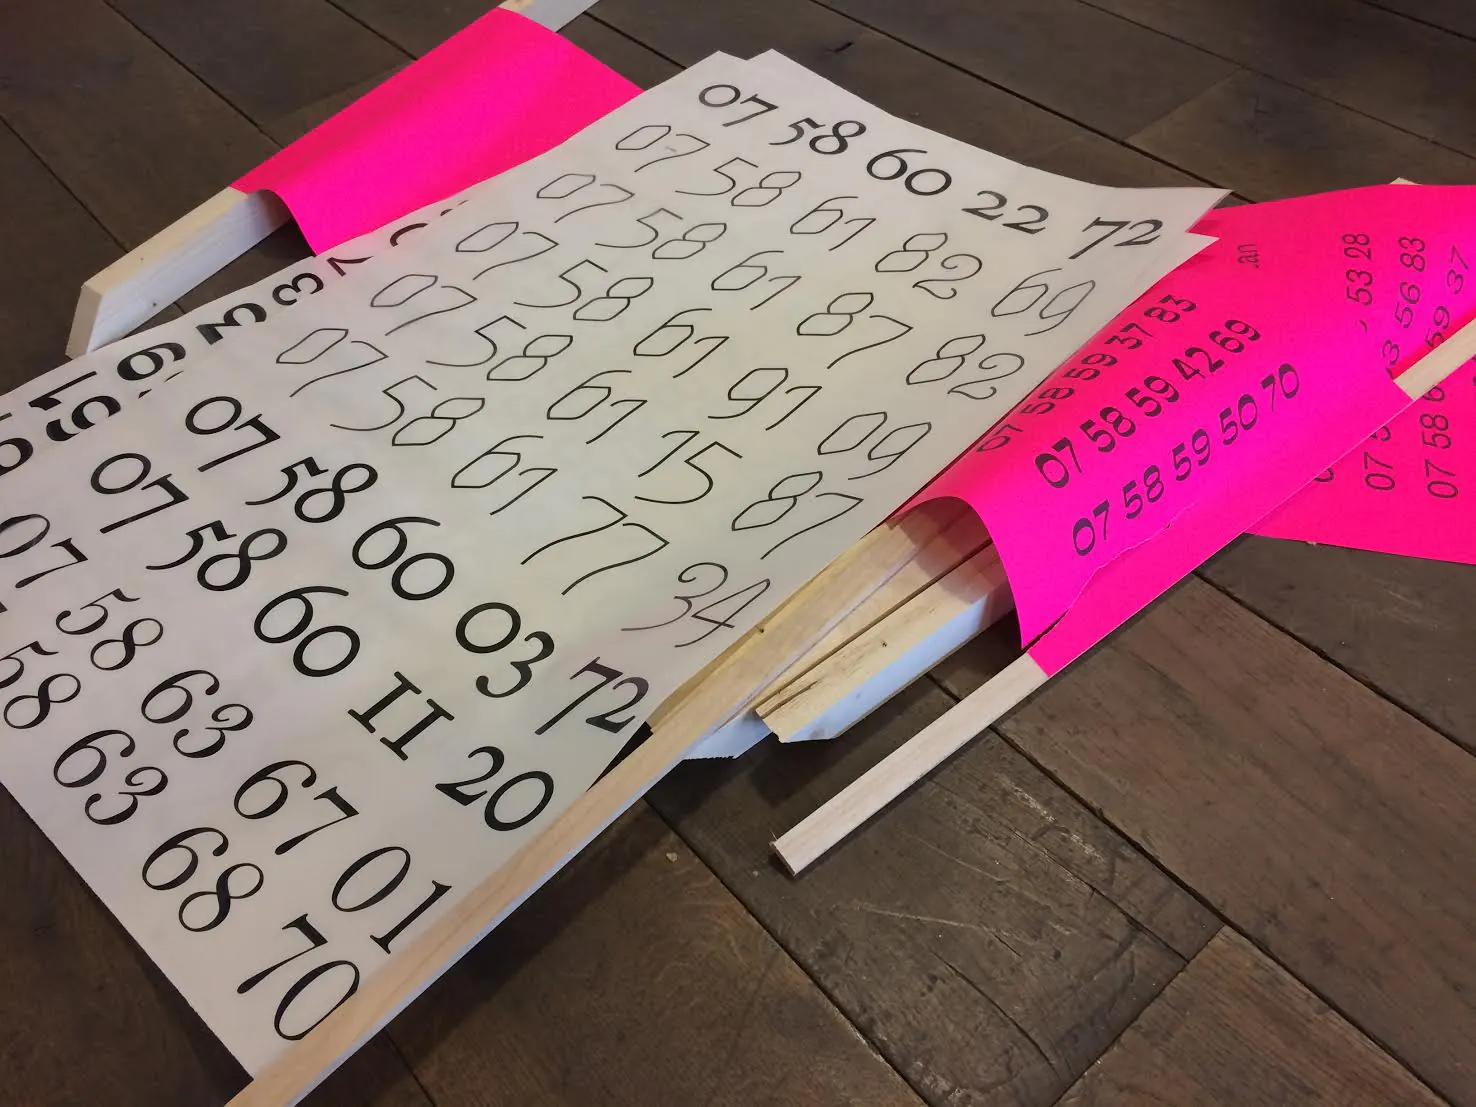 07 58 60 22 72
07 58 61 82 69
07 58 61 87 82
07 58 61 91 09
07 58 61 15 87
07 58 61 77 34
07 58 60 03 72
07 58 60 11 20
07 58 63 67 01
58 63 68 70
07 58 59 37 83
07 58 59 42 69
07 58 59 50 70
53 28
56 83
59 37
07 58